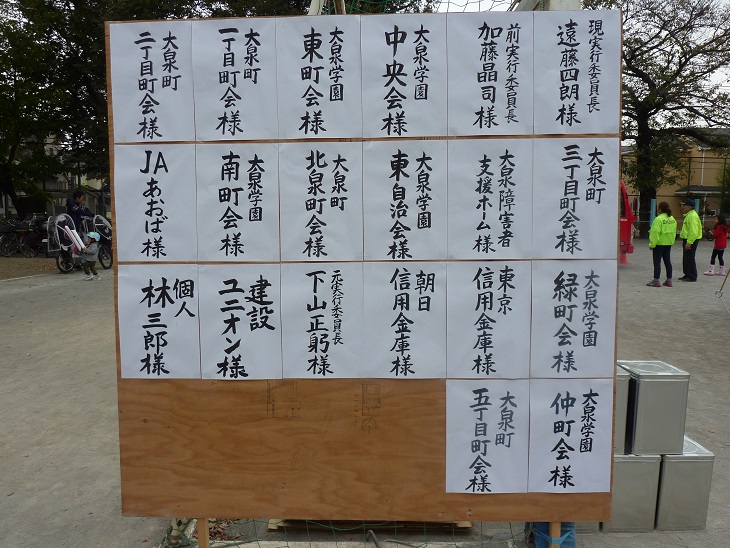 現実行委員長
遠藤四朗様
前実行委員長
加藤晶司様
大泉学園
中央会様
大泉学園
東町会様
大泉町
一丁目町会様
大泉町
二丁目町会様
大泉町
三丁目町会様
大泉障害者
支援ホーム様
大泉学園
東自治会様
大泉町
北泉町会様
大泉学園
南町会様
JAあおば様
大泉学園
緑町会様
東京
信用金庫様
朝日
信用金庫様
元実行委員長
下山正躬様
建設
ユニオン様
個人
林三郎様
大泉学園
仲町会様
大泉町
五丁目町会様